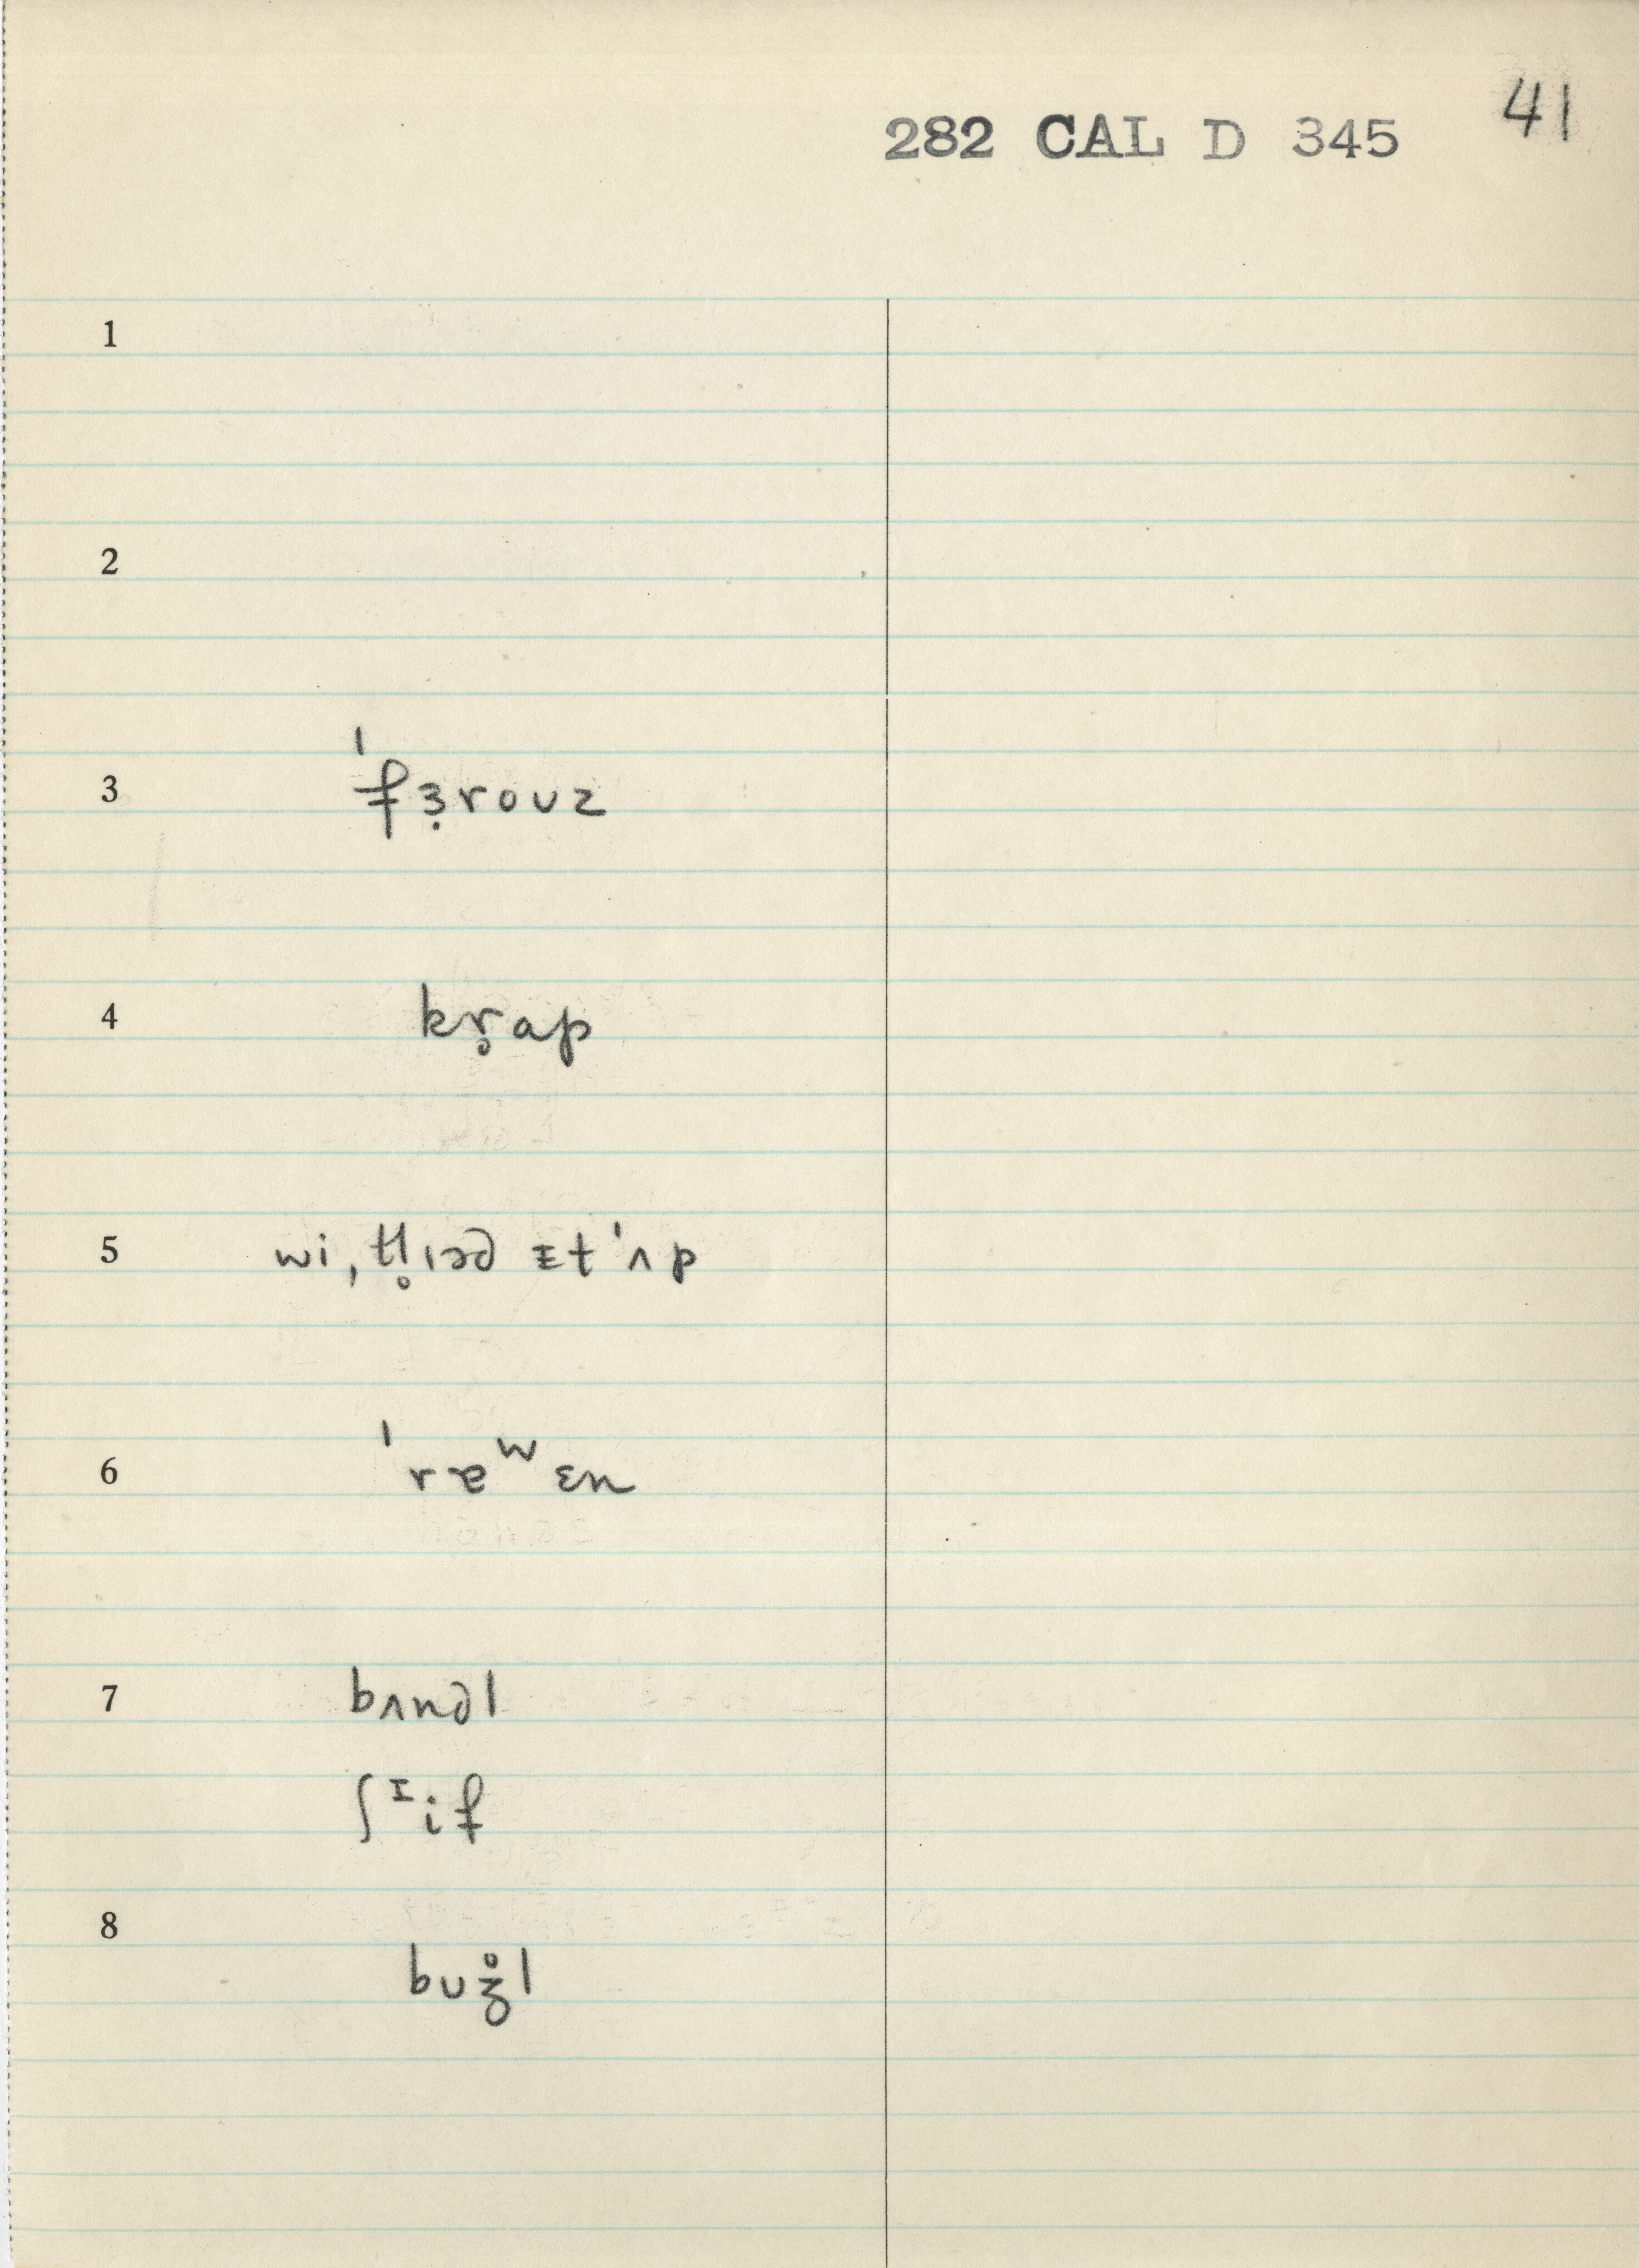 282 CAL D 345 41
1
2
3 ˈfɜ̣rouz
4 kr̥ap
5 wi‚ tʃl̥ɪəd ɪt ˈʌp
6 ˈræʷɛn
7 bʌndl
ʃᶦif
8 buʒ̊l